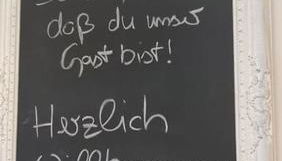 daß du unser
Gast bist!
Herzlich